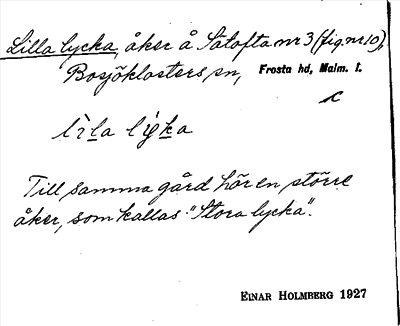 Lilla lycka, åker å Sätofta nr 3 (fig. nr 10),
Bosjöklosters sn, Frosta hd, Malm. l.
c
Till samma gård hör en större
åker, som kallas "Stora lycka".
EINAR HOLMBERG 1927